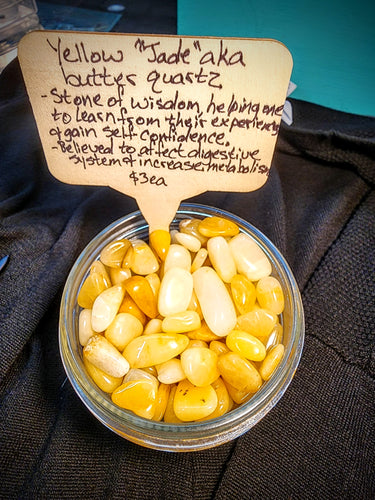 Yellow "Jade" aka
butter quartz
-Stone of wisdom, helping one
to learn from their experiences
& gain self-confidence.
-Believed to affect digestive
system & increase metabolism
$3ea